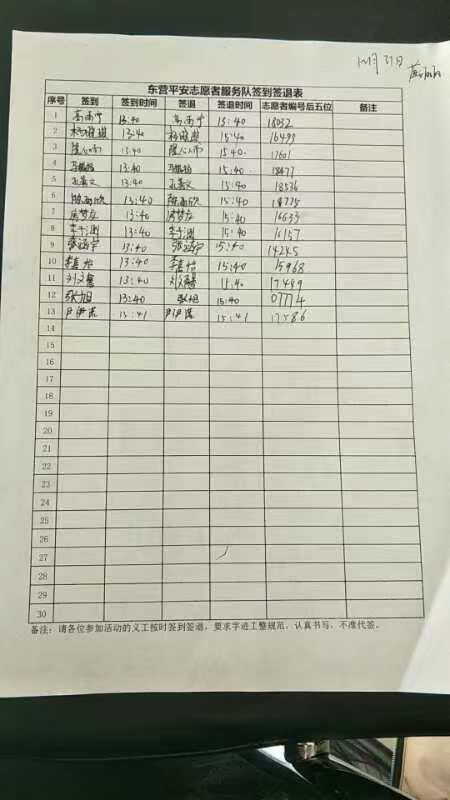 10月31日
东营平安志愿者服务队签到签退表
序号 签到 签到时间 签退 签退时间 志愿者编号后五位 备注
1 高雨宁 13:40 高雨宁 15:40 18032
2 13:40 15:40 16499
3 13:40 15:40 17601
4 13:40 15:40 18477
5 孔嘉文 13:40 孔嘉文 15:40 18536
6 陈雨欣 15:40 陈雨欣 15:40 18775
7 13:40 15:40 16633
8 13:40 15:40 16157
9 13:40 15:40 14245
10 13:40 15:40 15968
11 13:40 15:40 17489
12 张旭 13:40 张旭 15:40 07774
13 尹伊诺 13:41 尹伊诺 15:41 17586
14
15
16
17
18
19
20
21
22
23
24
25
26
27
28
29
30
备注：请各位参加活动的义工按时签到签退，要求字迹工整规范、认真书写，不准代签。